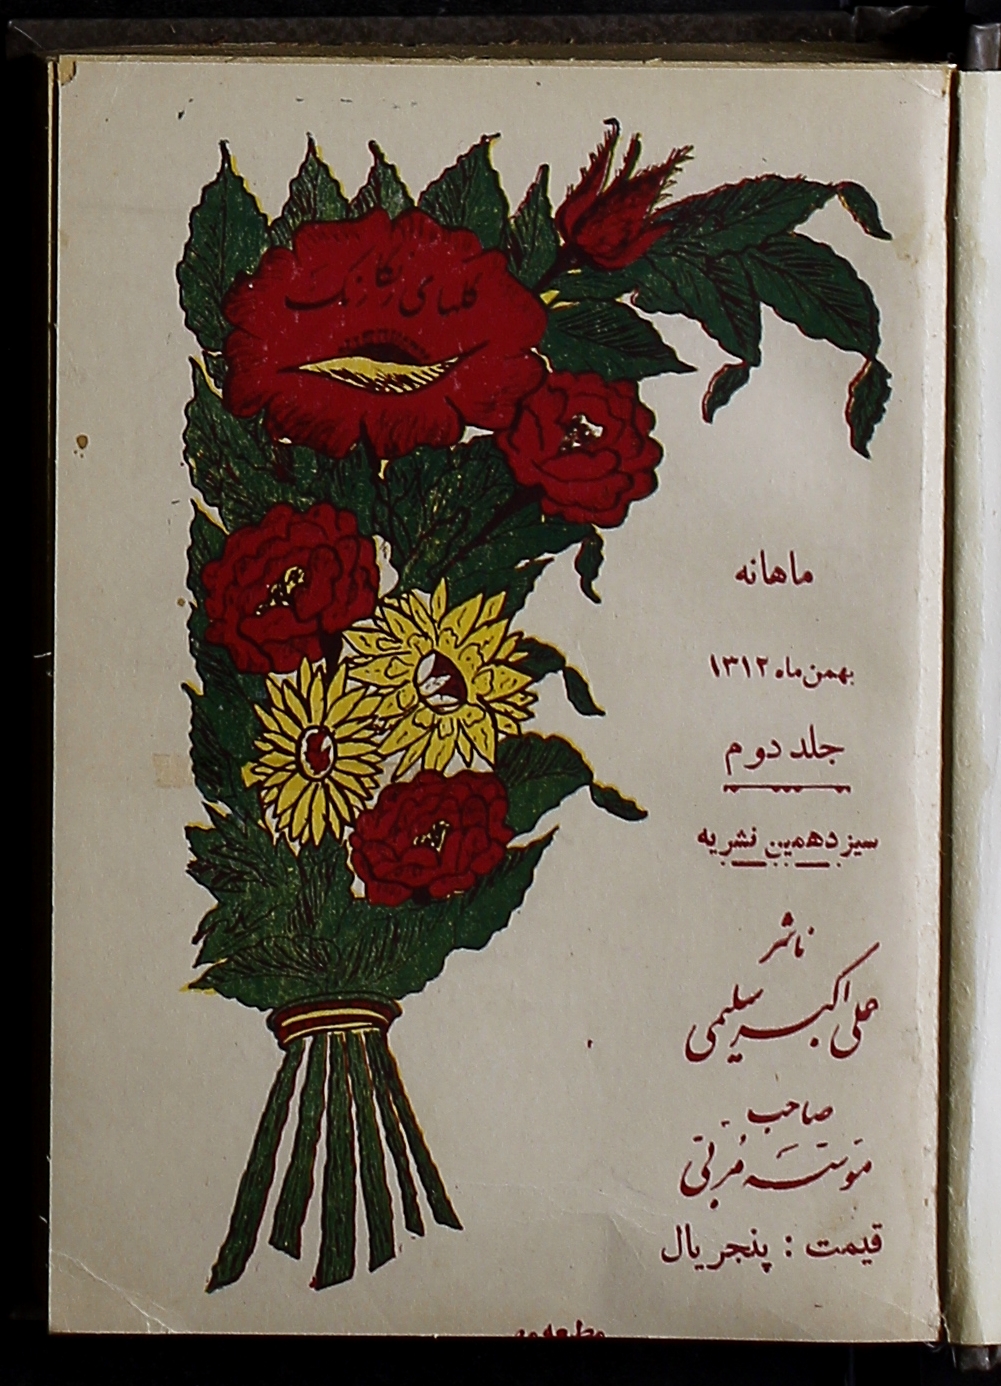 گلهای رنگارنگ
ماهانه
بهمن ماه ۱۳۱۲
جلد دوم
سیزدهمین نشریه
ناشر
علی اکبر سلیمی
صاحب
مؤسسه مرتی
قیمت : پنجریال
مطبعه